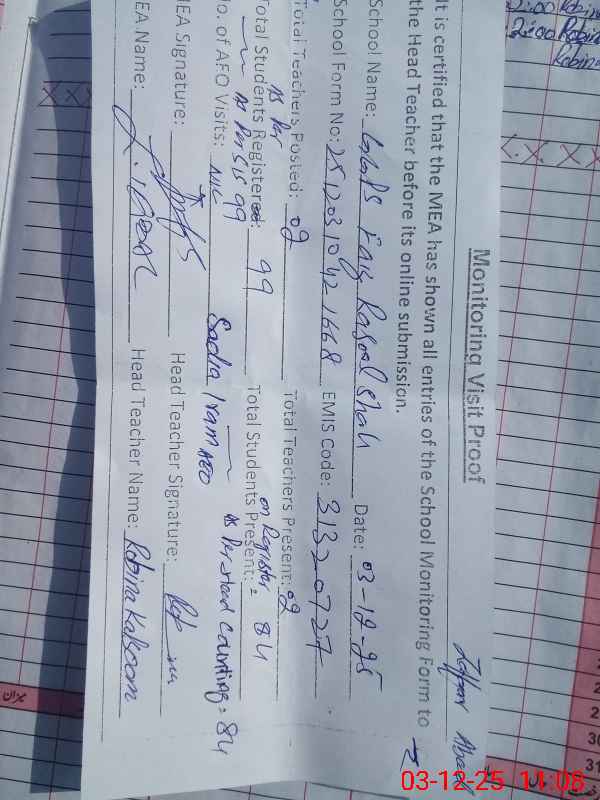 Monitoring Visit Proof
It is certified that the MEA has shown all entries of the School Monitoring Form to
the Head Teacher before its online submission.
School Name: GGPS Faiz Rasool Shah Date: 03-12-25
School Form No: 25120310421668 EMIS Code: 31320727
Total Teachers Posted: 02 Total Teachers Present: 02
on Register =
Total Students Registered: 99 Total Students Present: 84
As Per SIS 99 As Per Head Counting = 84
No. of AEO Visits: Sadia Iram AEO
MEA Signature: Head Teacher Signature:
MEA Name: Head Teacher Name: Robina Kalsoom
2:00 Robina
Robina
31
میزان
03-12-25 11:08